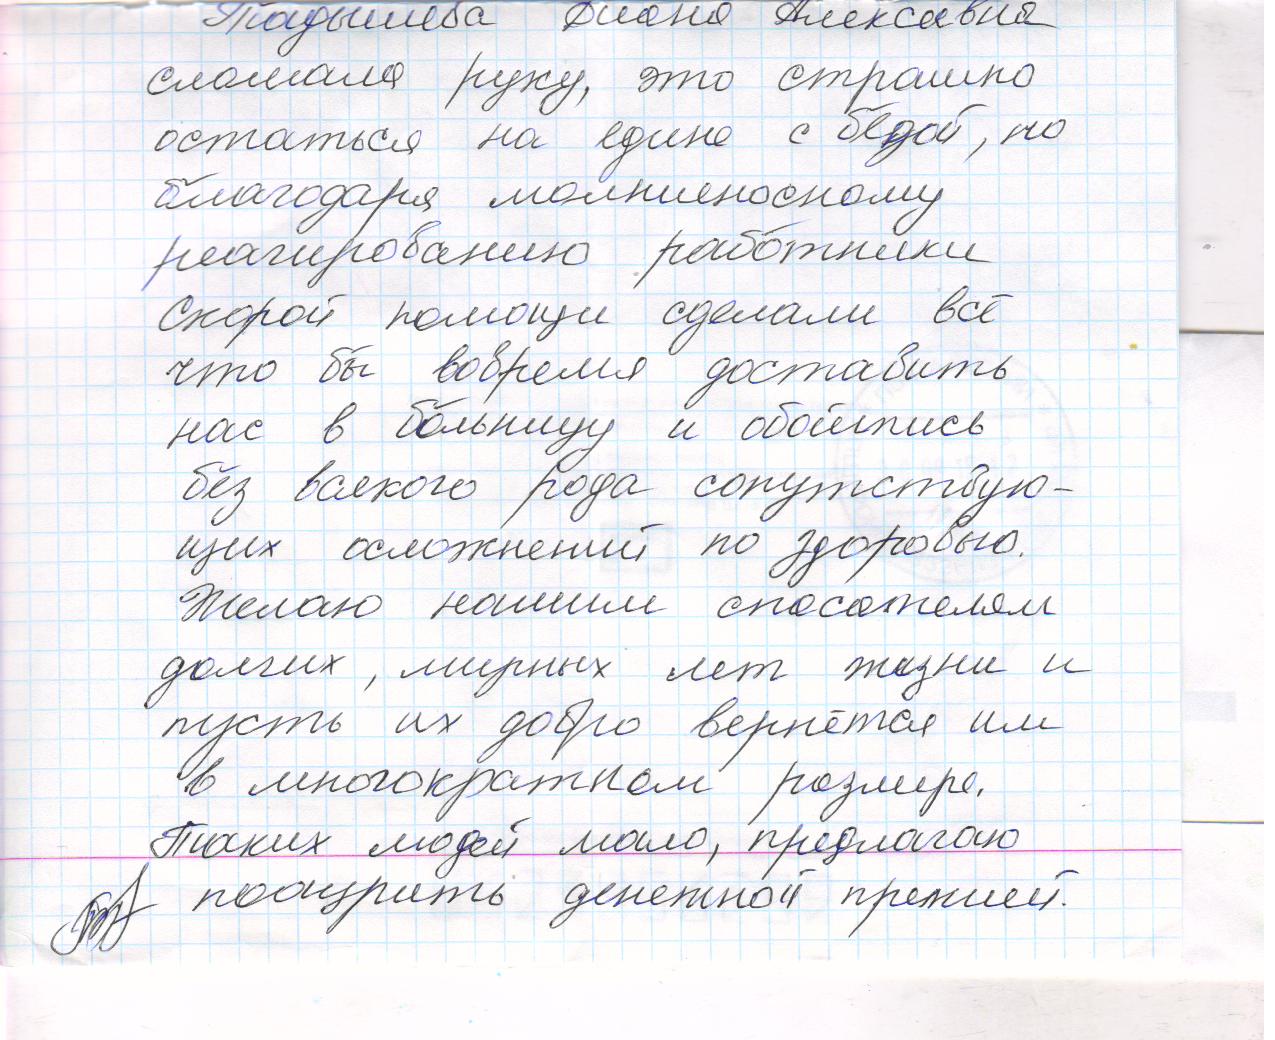 Диана Алексевна
сломала руку, это страшно
остаться на едине с бедой, но
благодаря молниеносному
реагированию работники
Скорой помощи сделали всё
что бы вовремя доставить
нас в больницу и обойтись
без всякого рода сопутствую-
щих осложнений по здоровью.
Желаю нашим спасателям
долгих, мирных лет жизни и
пусть их добро вернётся им
в многократном размере.
Таких людей мало, предлагаю
поощрить денежной премией.